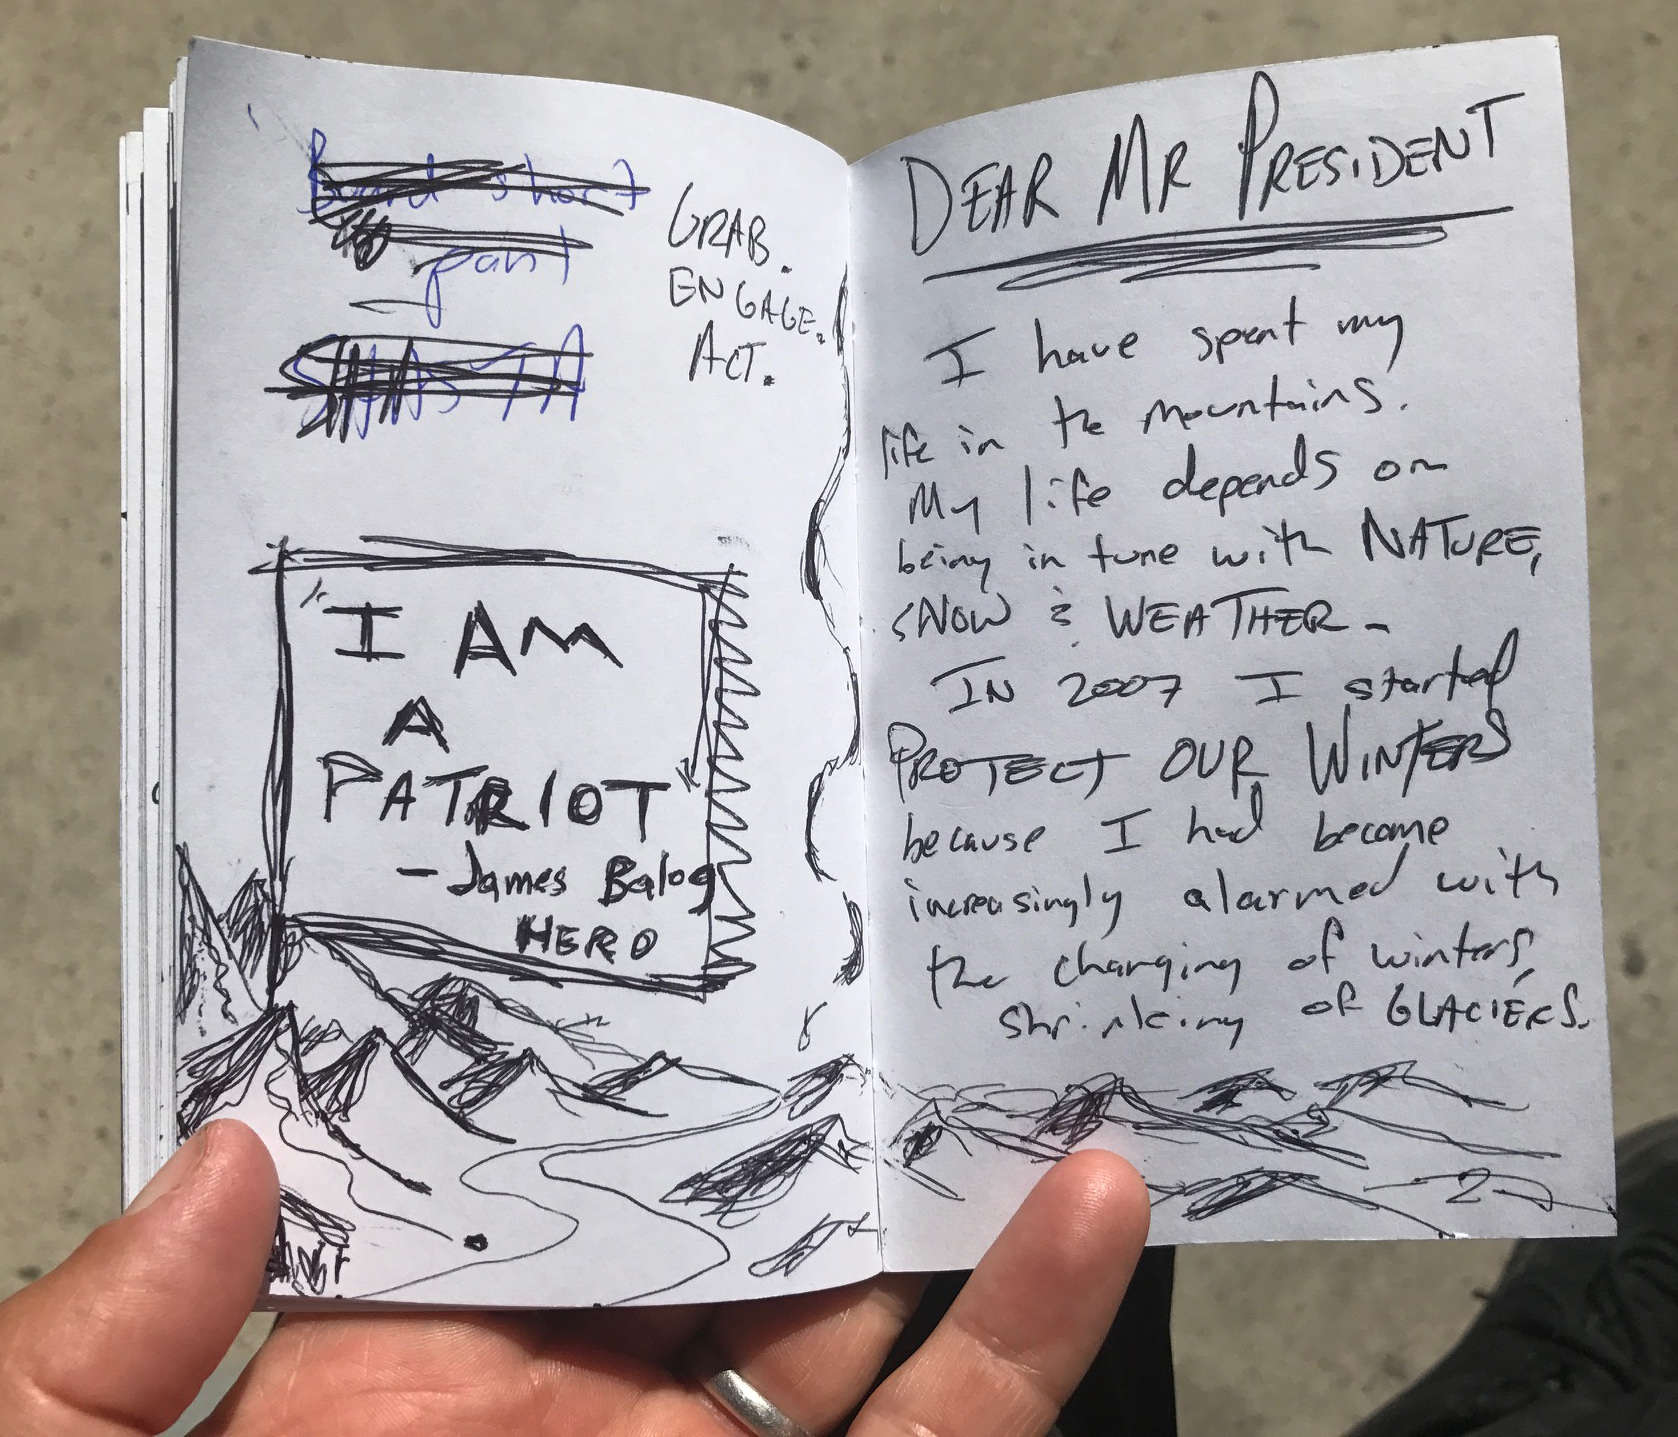 short
pant
GRAB.
ENGAGE.
ACT.
I AM
A
PATRIOT
- James Balog
HERO
DEAR MR PRESIDENT
I have spent my
life in the mountains.
My life depends on
being in tune with NATURE,
SNOW & WEATHER -
IN 2007 I started
PROTECT OUR WINTERS
because I had become
increasingly alarmed with
the changing of winters,
shrinking of GLACIERS.